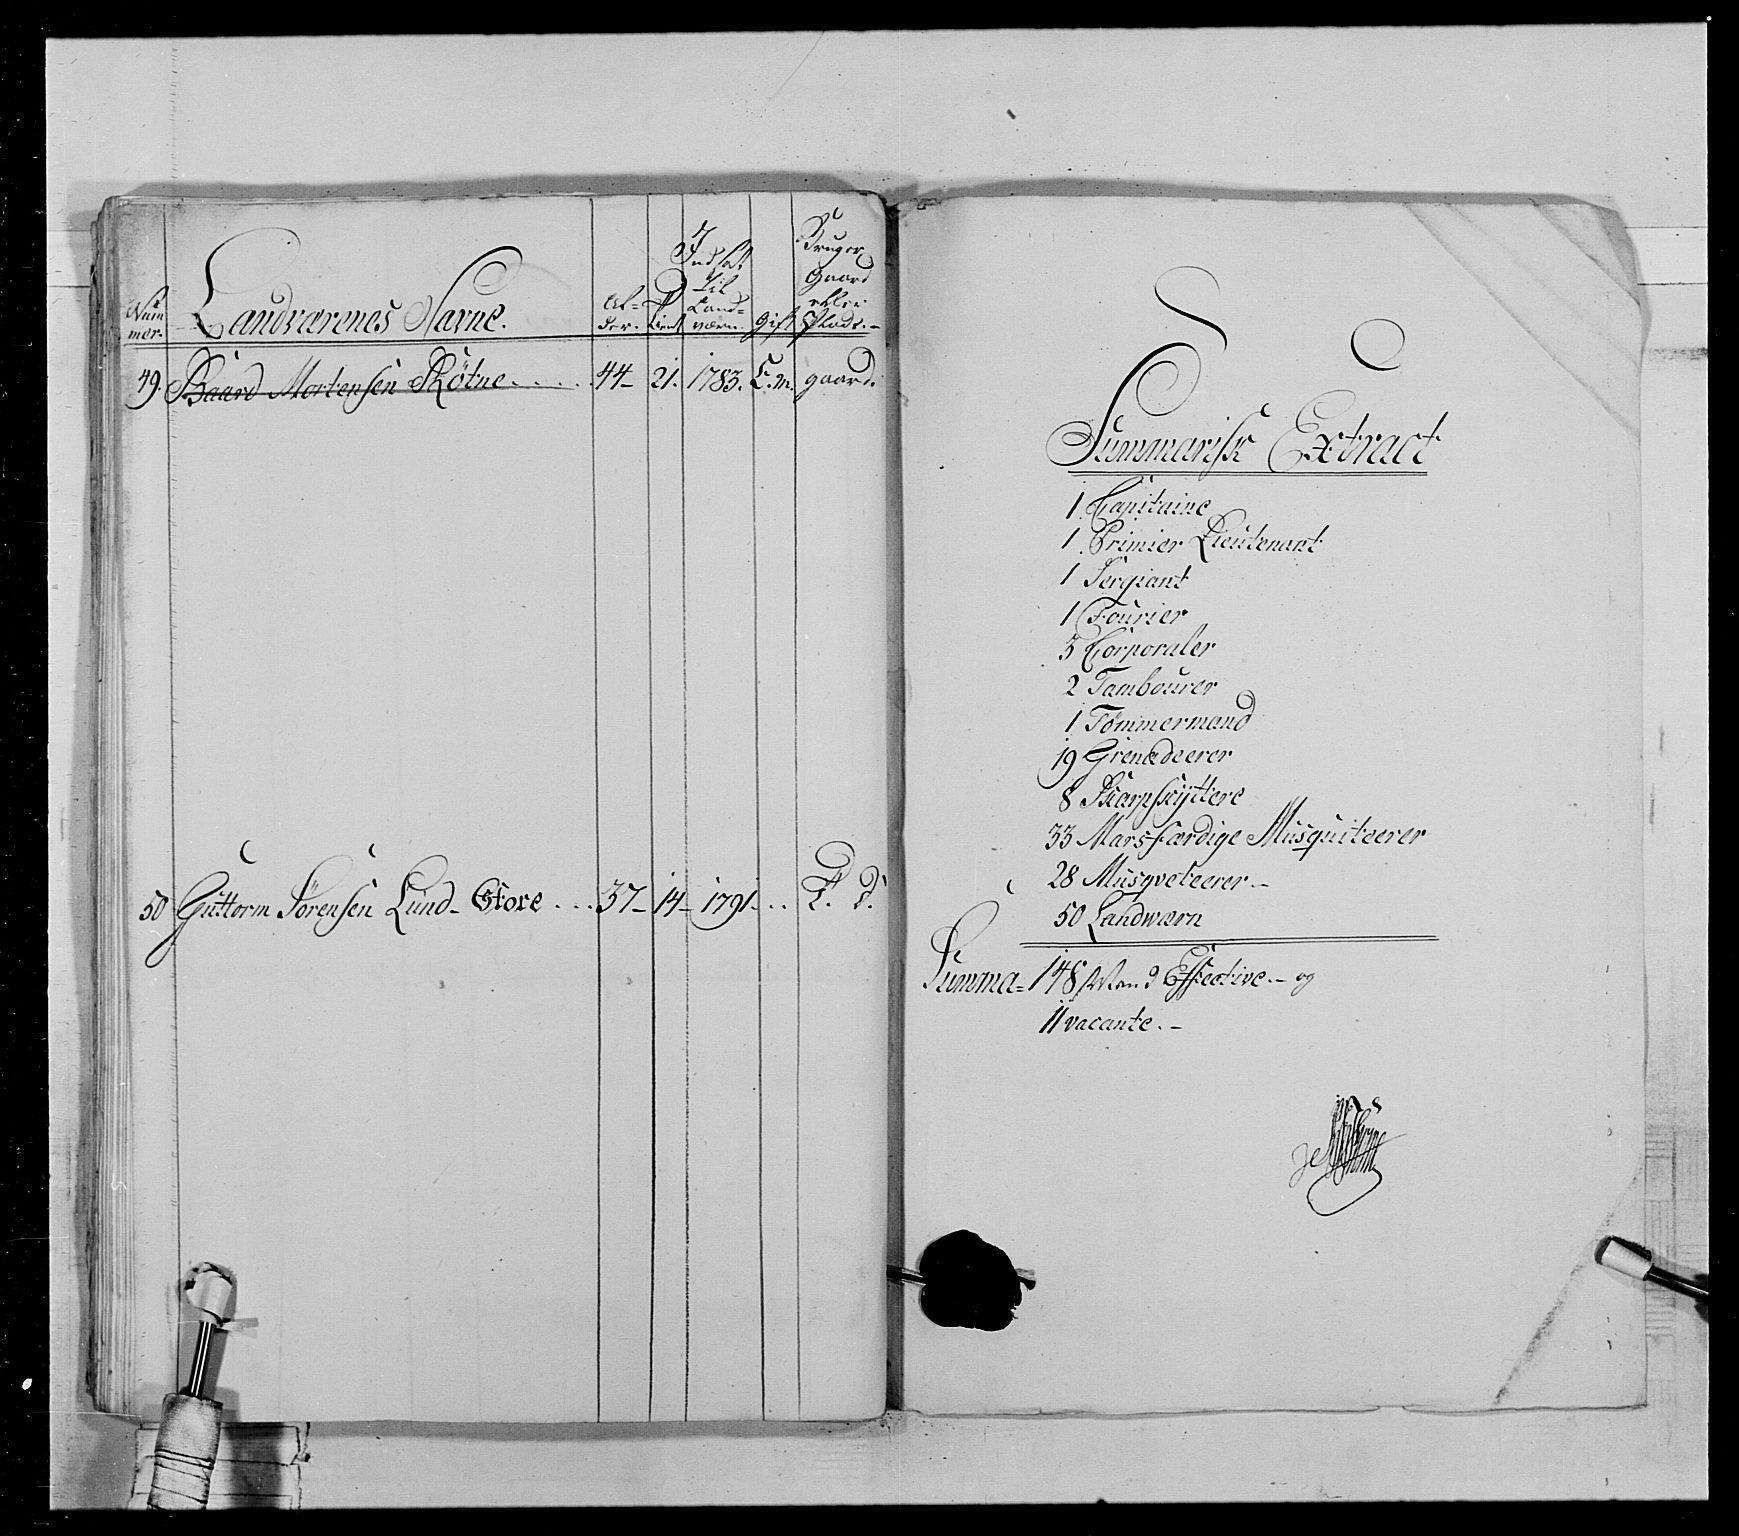 Num
mer.
Landværenes Navne.
Al=
der.
Tient
Indsat
til
Land=
værn.
Gift
Bruger
Gaard
eller
Plads.-
49. Baard Mortensen Røtne..... 44- 21. 1783. E.m. gaard.
50 Guttorm Sörensen Lund- Store ... 37- 14- 1791. .. D. D.
Summarisk Extract
1 Capitaine
1 Primier Lieutenant
1 Sergiant
1 Fourier
3 Corporaler
2 Tambourer
1 Tömmermand
19 Grenadeerer
8 Skarpskyttere
33 Marsfærdige Musquiteerer
28 Musqveteerer.-
50 Landwærn
Summa= 148 Mand Effective.- og
11 vacante.-